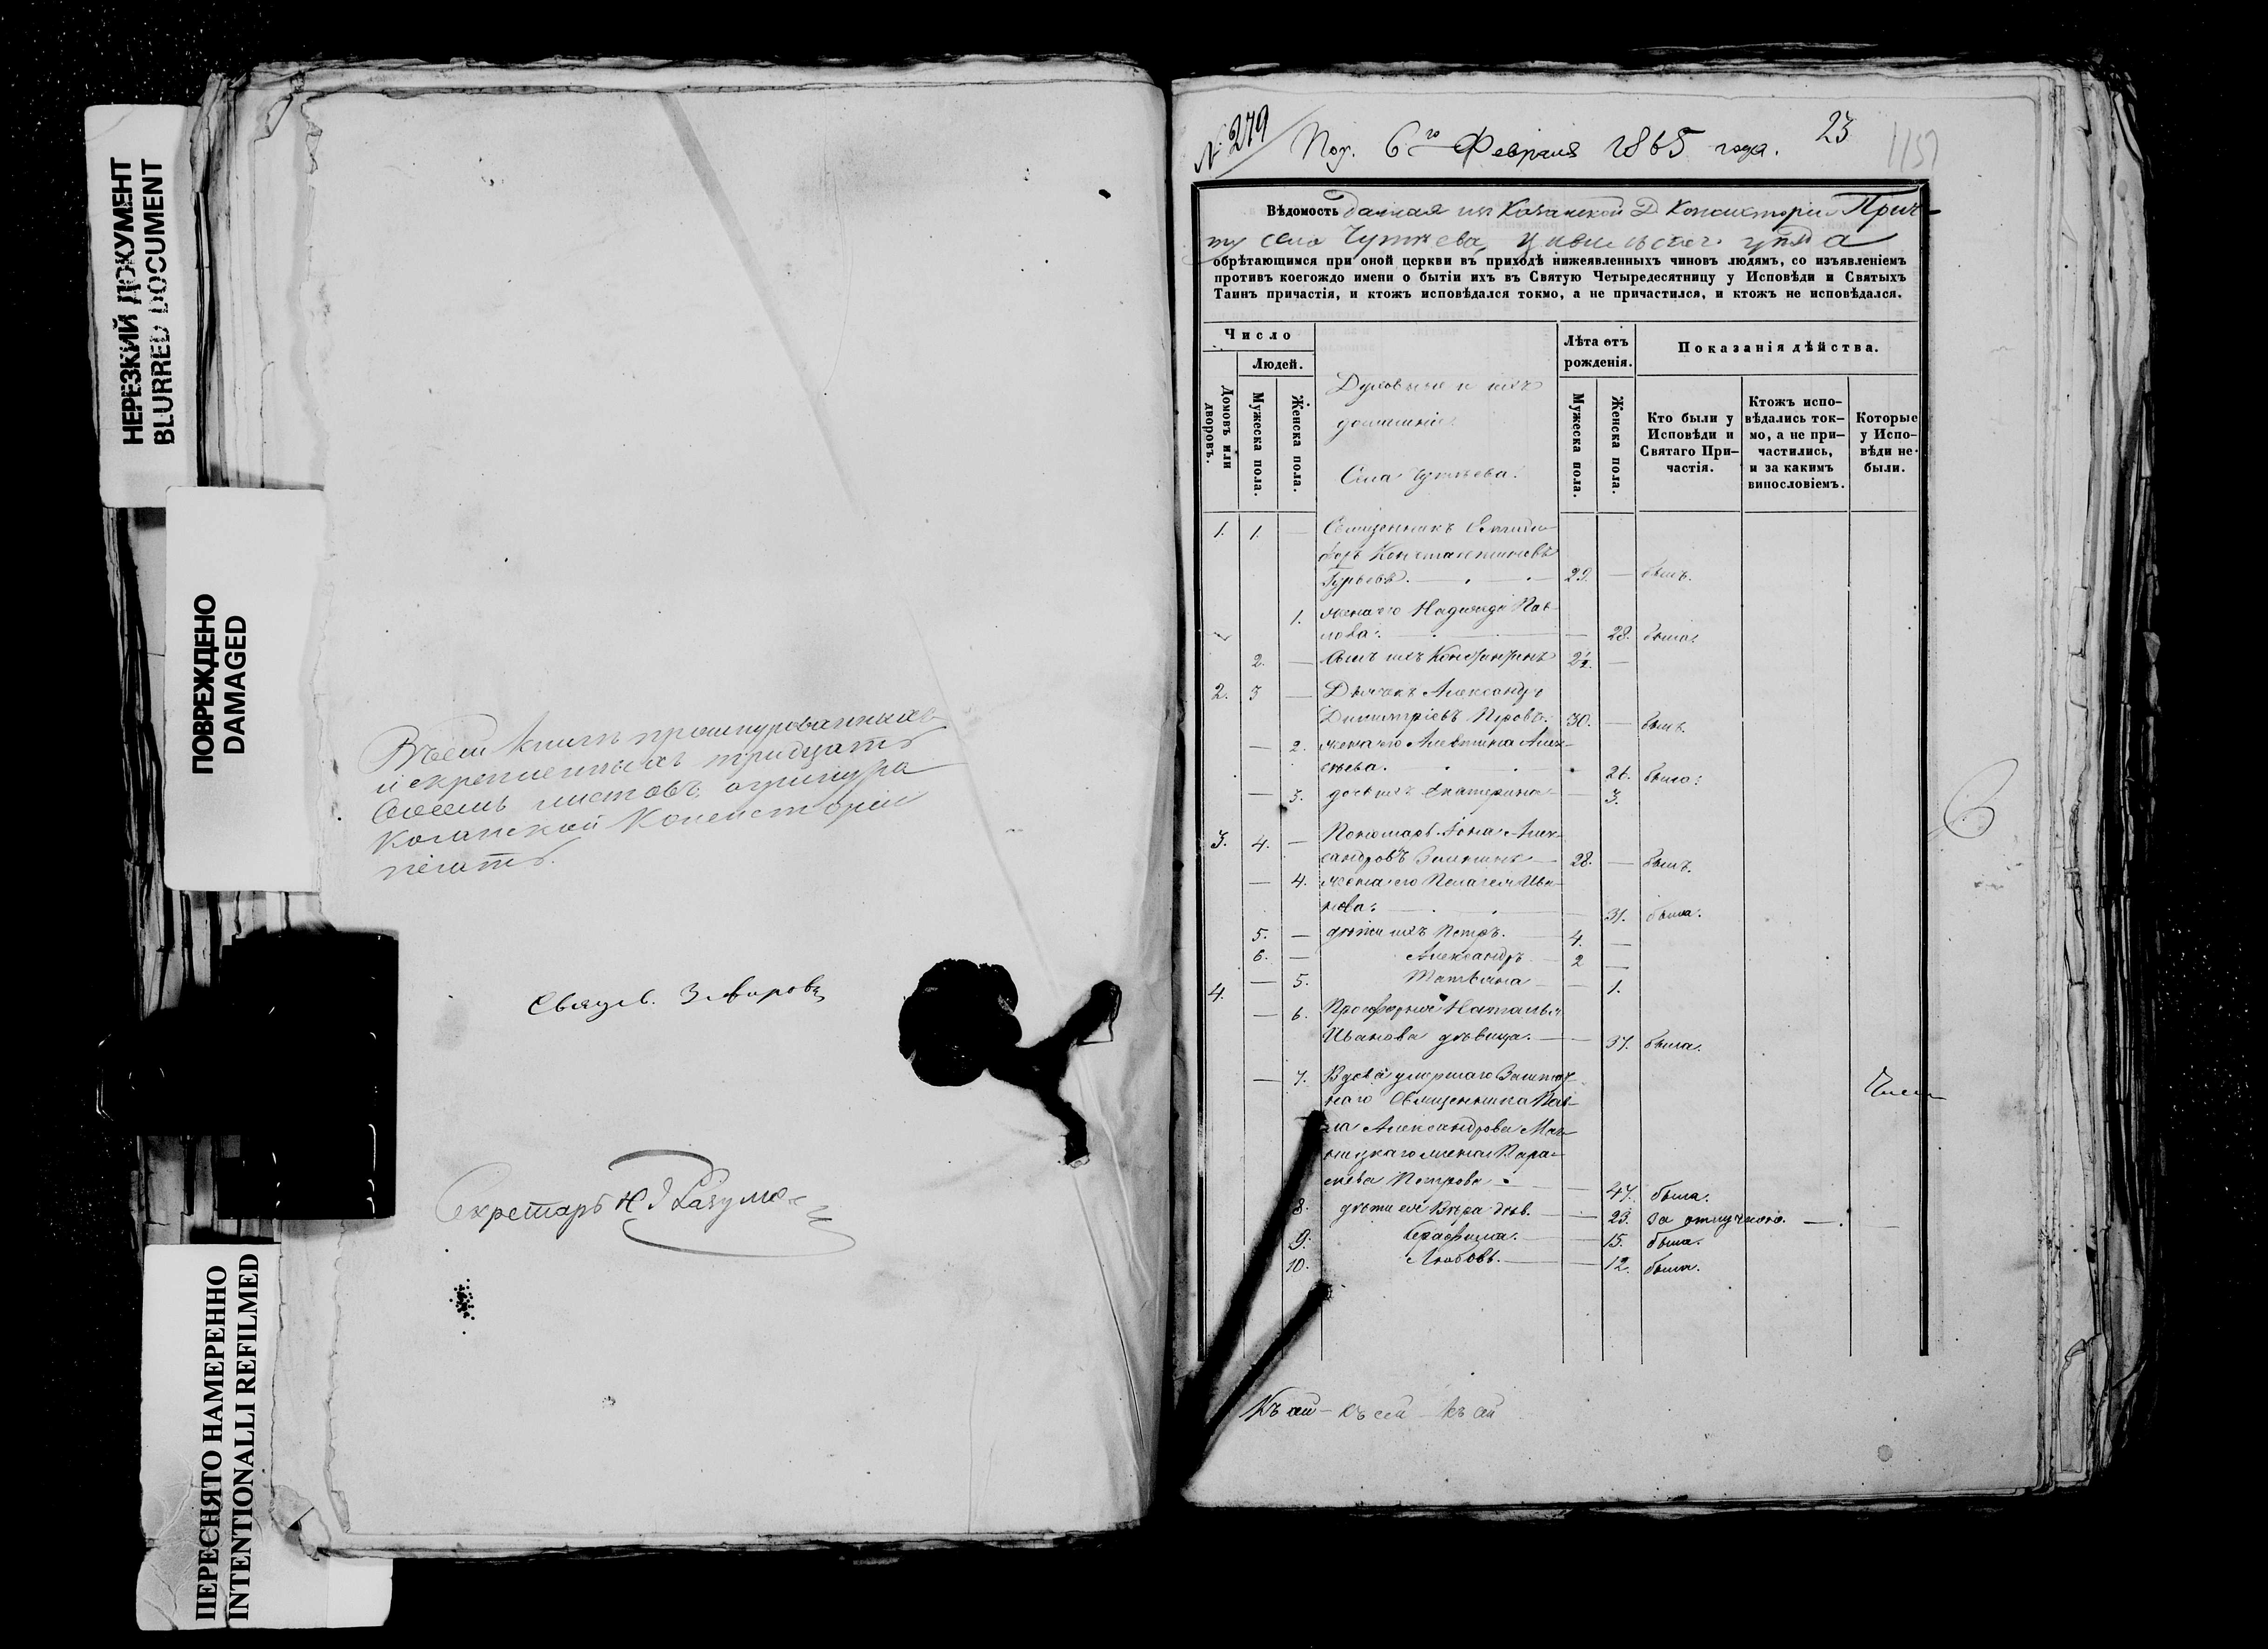 НЕРЕЗКИЙ ДОКУМЕНТ
BLURRED DOCUMENT
ПОВРЕЖДЕНО
DAMAGED
ПЕРЕСНЯТО НАМЕРЕННО
INTENTIONALLI REFILMED
книгѣ прошнурованныхъ
и скрепленныхъ тридцать
листовъ
Казанской Консисторіи
печать.
Секретарь
№ 279
Пол. 6го Февраля 1865 года.
23
Вѣдомость данная изъ Казанской Д. Консисторіи Прич-
ту села Чутѣева, Цивильскаго уѣзда
обрѣтающимся при оной церкви въ приходѣ нижеявленныхъ чиновъ людямъ, со изъявленіемъ
противъ коегождо имени о бытіи ихъ въ Святую Четыредесятницу у Исповѣди и Святыхъ
Таинъ причастія, и ктожъ исповѣдался токмо, а не причастился, и ктожъ не исповѣдался.
Число
Людей.
Домовъ или дворовъ.
Мужеска пола.
Женска пола.
Духовные и ихъ
домашніе.
Села Чутѣева.
Лѣта отъ рожденія.
Мужеска пола.
Женска пола.
Показанія дѣйства.
Кто были у Исповѣди и Святаго При-частія.
Ктожъ испо-вѣдались ток-мо, а не при-частились, и за какимъ винословіемъ.
Которые у Испо-вѣди не были.
1. 1. — Священникъ
Константиновъ
Гурьевъ. 29. — былъ.
1. жена его Надежда Пав-
лова. — 28. была.
2. — Сынъ ихъ Константинъ 2½. —
2. 3 — Дьячекъ Александръ
Димитріевъ 30. — былъ.
— 2. жена его Алевтина Алек-
сѣева. 21. была.
— 3. дочь ихъ Екатерина — 3.
3. 4. — Пономарь Іона Алек-
сандровъ 28. — былъ.
— 4. жена его Пелагея Ива-
нова. — 31. была.
5. — дѣти ихъ Петръ. 4. —
6. — Александръ 2 —
— 5. Татьяна — 1.
4. — 6. Просфорня Наталья
Иванова дѣвица. — 37. была.
— 7. Вдова умершаго Заштат-
наго Священника Пав-
ла Александрова
жена Пара-
скева Петрова — 47. была.
8. дѣти ея Вѣра дѣв. — 23. за отлучкою.
9. Серафима. — 15. была.
10. Любовь. — 12. была.